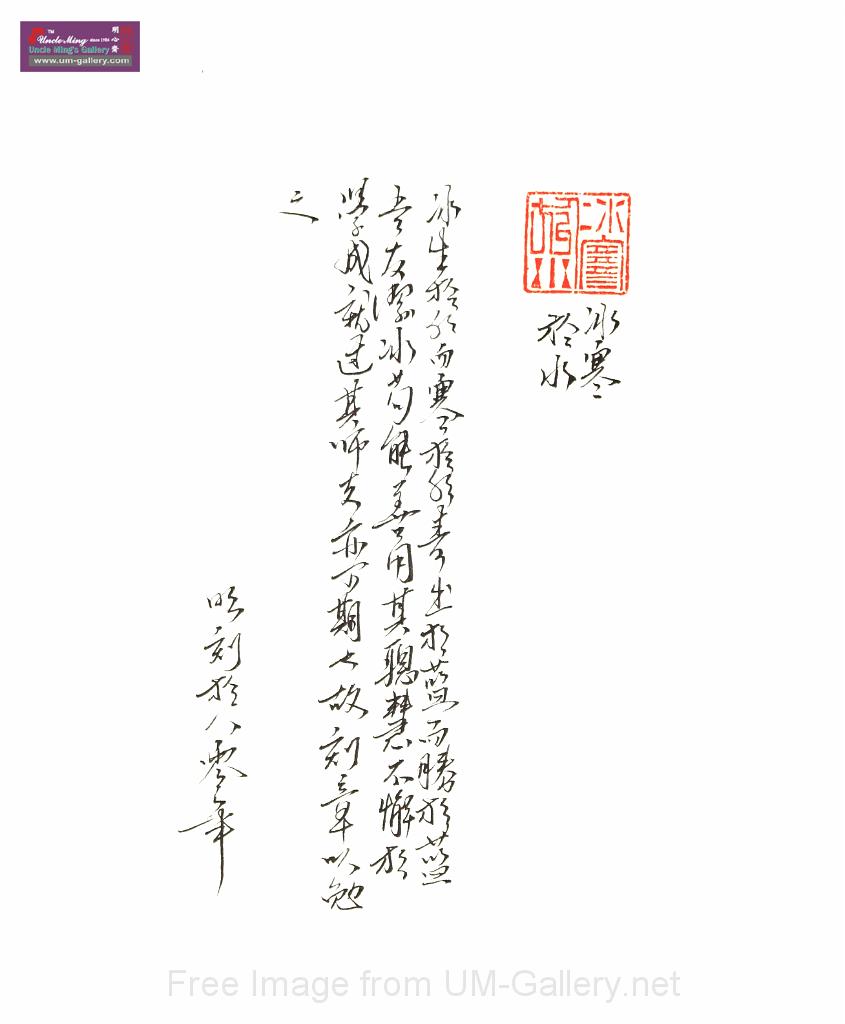 Uncle Ming since 1984
明心齋
Uncle Ming's Gallery
www.um-gallery.com
冰寒
於水
冰寒
於水
冰生於水而寒於水青出於藍而勝於藍
吾友潔冰苟能善用其聰慧不懈於
學成就達其師者亦可期也故刻章以勉
之
明刻於八零年
Free Image from UM-Gallery.net